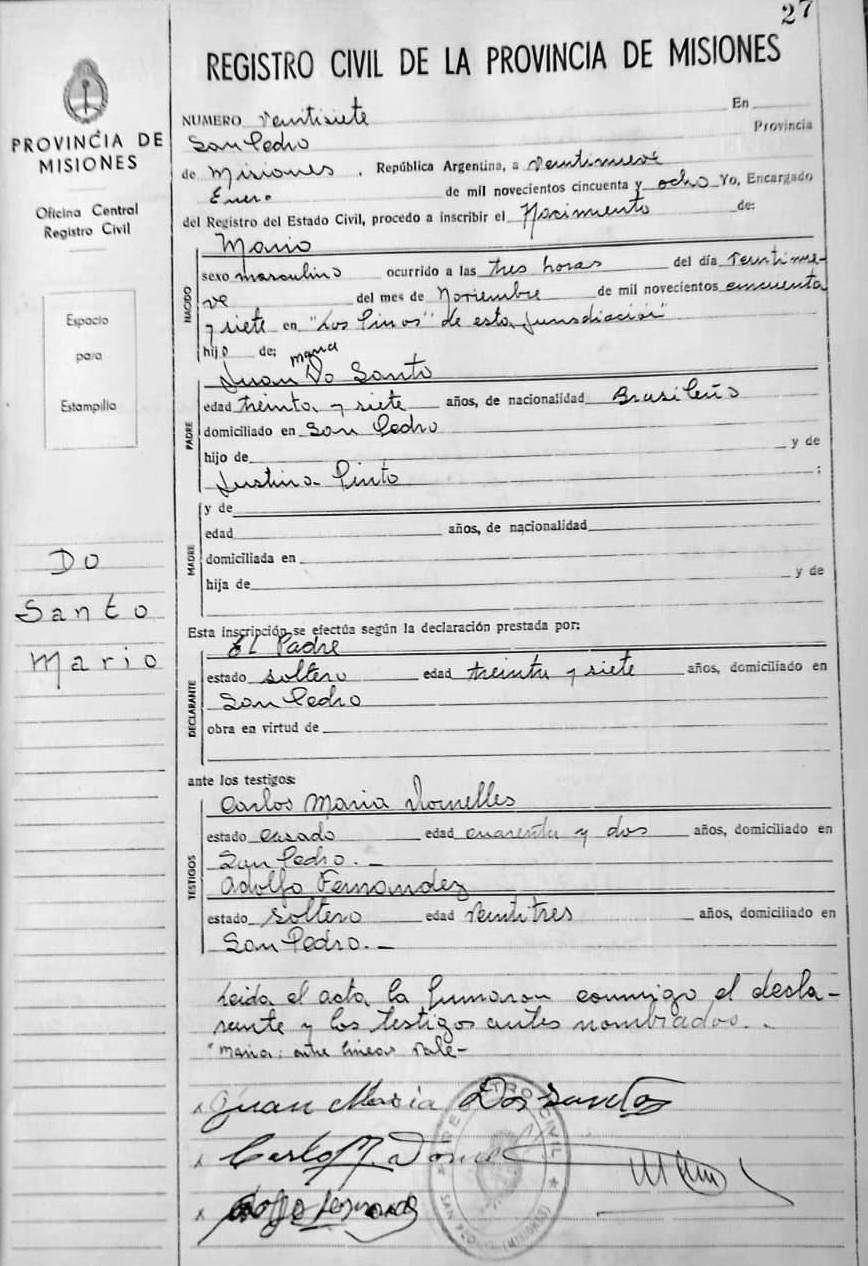 27
REGISTRO CIVIL DE LA PROVINCIA DE MISIONES
PROVINCIA DE
MISIONES
Oficina Central
Registro Civil
Espacio
para
Estampilla
Do
Santo
Mario
NUMERO Veintisiete En
San Pedro Provincia
de Misiones, República Argentina, a Veintinueve
Enero de mil novecientos cincuenta y ocho Yo, Encargado
del Registro del Estado Civil, procedo a inscribir el Nacimiento de:
NACIDO
Mario
sexo masculino ocurrido a las tres horas del día veintinue-
ve del mes de Noviembre de mil novecientos cincuenta
y siete en "Los Pinos" de esta jurisdicción
hijo de: maria
Juan Do Santo
PADRE
edad treinta y siete años, de nacionalidad Brasileño
domiciliado en San Pedro
hijo de y de
Justina Pinto ;
MADRE
y de
edad años, de nacionalidad
domiciliada en
hija de y de
Esta inscripción se efectúa según la declaración prestada por:
El Padre
DECLARANTE
estado soltero edad treinta y siete años, domiciliado en
San Pedro
obra en virtud de
ante los testigos:
TESTIGOS
Carlos Maria Dornelles
estado casado edad cuarenta y dos años, domiciliado en
San Pedro.-
Adolfo Fernandez
estado soltero edad veintitres años, domiciliado en
San Pedro.-
Leida el acta la firmaron conmigo el decla-
rante y los testigos antes nombrados..
"maria: entre lineas vale-
x Juan Maria Dos Santos
x Carlos M. Dorne
x
REGISTRO CIVIL
SAN PEDRO (MISIONES)